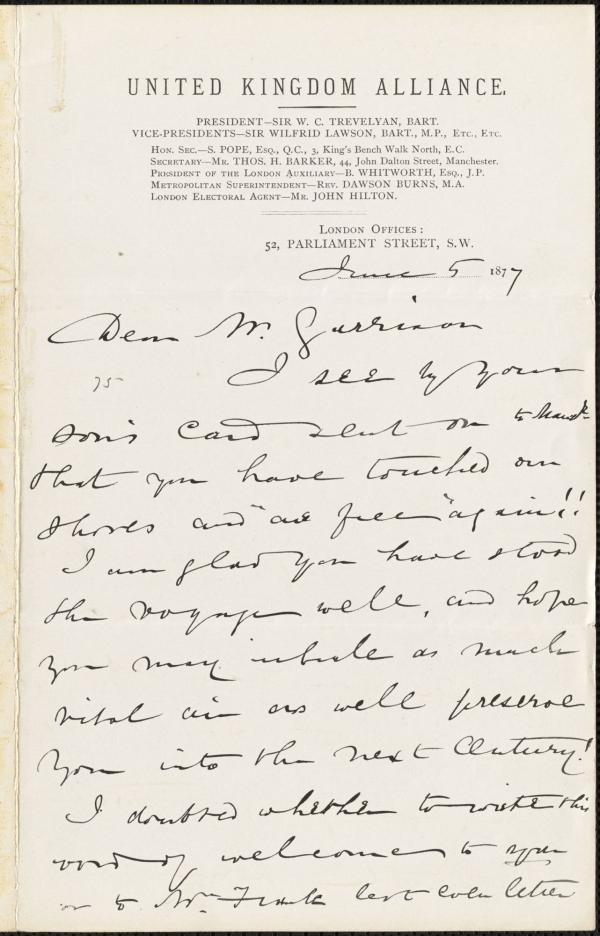 UNITED KINGDOM ALLIANCE.
PRESIDENT—SIR W. C. TREVELYAN, BART.
VICE-PRESIDENTS—SIR WILFRID LAWSON, BART., M.P., ETC., ETC.
HON. SEC.—S. POPE, ESQ., Q.C., 3, King's Bench Walk North, E.C.
SECRETARY—MR. THOS. H. BARKER, 44, John Dalton Street, Manchester.
PRESIDENT OF THE LONDON AUXILIARY—B. WHITWORTH, ESQ., J.P.
METROPOLITAN SUPERINTENDENT—REV. DAWSON BURNS, M.A.
LONDON ELECTORAL AGENT—MR. JOHN HILTON.
LONDON OFFICES:
52, PARLIAMENT STREET, S.W.
June 5 1877
Dear Mr. Garrison
75
I see by your
son's card sent on to
that you have touched our
shores and "are free" again!!
I am glad you have stood
the voyage well, and hope
you may inhale as much
vital air as will preserve
you into the next Century!
I doubted whether to write this
word of welcome to you
or to Mr Frank lest even letter